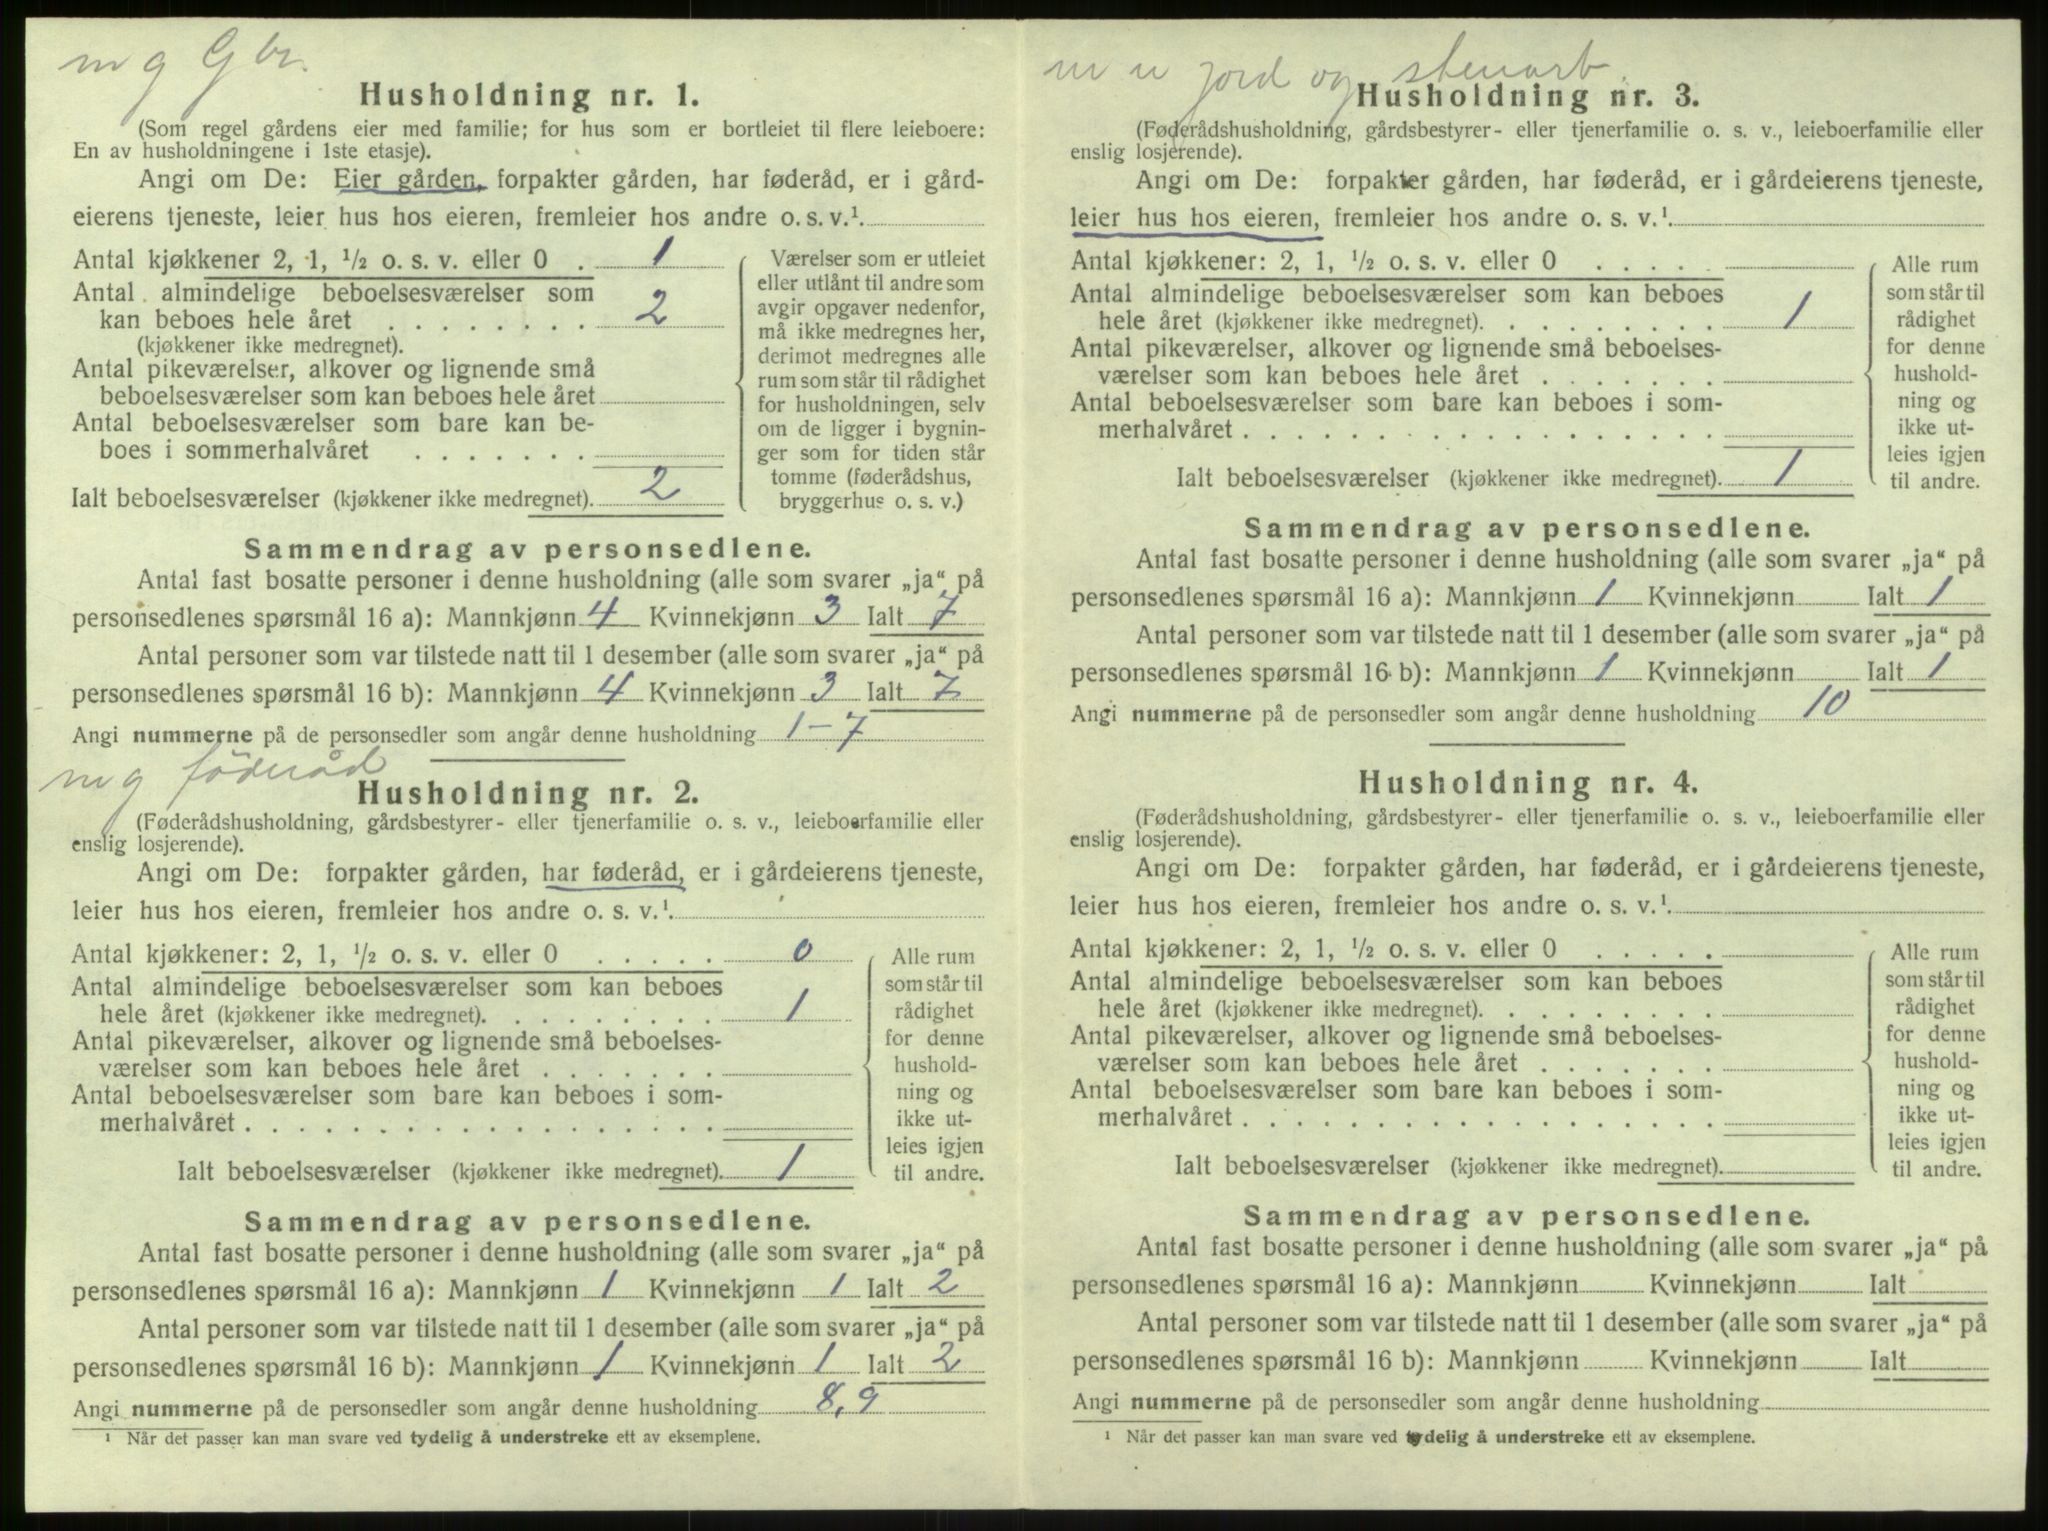 m g Gbr.
Husholdning nr. 1.
(Som regel gårdens eier med familie; for hus som er bortleiet til flere leieboere:
En av husholdningene i 1ste etasje).
Angi om De: Eier gården, forpakter gården, har føderåd, er i gård-
eierens tjeneste, leier hus hos eieren, fremleier hos andre o. s. v.¹.
Antal kjøkkener 2, 1, ½ o. s. v. eller 0 . 1
Antal almindelige beboelsesværelser som
kan beboes hele året . . . . . . . . 2
(kjøkkener ikke medregnet).
Antal pikeværelser, alkover og lignende små
beboelsesværelser som kan beboes hele året
Antal beboelsesværelser som bare kan be-
boes i sommerhalvåret . . . . . . .
Ialt beboelsesværelser (kjøkkener ikke medregnet). 2
Værelser som er utleiet
eller utlånt til andre som
avgir opgaver nedenfor,
må ikke medregnes her,
derimot medregnes alle
rum som står til rådighet
for husholdningen, selv
om de ligger i bygnin-
ger som for tiden står
tomme (føderådshus,
bryggerhus o. s. v.)
Sammendrag av personsedlene.
Antal fast bosatte personer i denne husholdning (alle som svarer „ja“ på
personsedlenes spørsmål 16 a): Mannkjønn 4 Kvinnekjønn 3 Ialt 7
Antal personer som var tilstede natt til 1 desember (alle som svarer „ja“ på
personsedlenes spørsmål 16 b): Mannkjønn 4 Kvinnekjønn 3 Ialt 7
Angi nummerne på de personsedler som angår denne husholdning 1-7
m g föderåd
Husholdning nr. 2.
(Føderådshusholdning, gårdsbestyrer- eller tjenerfamilie o. s. v., leieboerfamilie eller
enslig losjerende).
Angi om De: forpakter gården, har føderåd, er i gårdeierens tjeneste,
leier hus hos eieren, fremleier hos andre o. s. v.¹.
Antal kjøkkener: 2, 1, ½ o. s. v. eller 0 . . . . . 0
Antal almindelige beboelsesværelser som kan beboes
hele året (kjøkkener ikke medregnet). . . . . . . . . 1
Antal pikeværelser, alkover og lignende små beboelses-
værelser som kan beboes hele året . . . . . . .
Antal beboelsesværelser som bare kan beboes i som-
merhalvåret . . . . . . . . . . . . . . . . . .
Ialt beboelsesværelser (kjøkkener ikke medregnet). 1
Alle rum
som står til
rådighet
for denne
hushold-
ning og
ikke ut-
leies igjen
til andre.
Sammendrag av personsedlene.
Antal fast bosatte personer i denne husholdning (alle som svarer „ja“ på
personsedlenes spørsmål 16 a): Mannkjønn 1 Kvinnekjønn 1 Ialt 2
Antal personer som var tilstede natt til 1 desember (alle som svarer „ja“ på
personsedlenes spørsmål 16 b): Mannkjønn 1 Kvinnekjønn 1 Ialt 2
Angi nummerne på de personsedler som angår denne husholdning 8,9
¹ Når det passer kan man svare ved tydelig å understreke ett av eksemplene.
m u jord og stenarb.
Husholdning nr. 3.
(Føderådshusholdning, gårdsbestyrer- eller tjenerfamilie o. s. v., leieboerfamilie eller
enslig losjerende).
Angi om De: forpakter gården, har føderåd, er i gårdeierens tjeneste,
leier hus hos eieren, fremleier hos andre o. s. v.¹.
Antal kjøkkener: 2, 1, ½ o. s. v. eller 0 . . . . .
Antal almindelige beboelsesværelser som kan beboes
hele året (kjøkkener ikke medregnet). . . . . . . . . 1
Antal pikeværelser, alkover og lignende små beboelses-
værelser som kan beboes hele året . . . . . . .
Antal beboelsesværelser som bare kan beboes i som-
merhalvåret . . . . . . . . . . . . . . . . . .
Ialt beboelsesværelser (kjøkkener ikke medregnet). 1
Alle rum
som står til
rådighet
for denne
hushold-
ning og
ikke ut-
leies igjen
til andre.
Sammendrag av personsedlene.
Antal fast bosatte personer i denne husholdning (alle som svarer „ja“ på
personsedlenes spørsmål 16 a): Mannkjønn 1 Kvinnekjønn Ialt 1
Antal personer som var tilstede natt til 1 desember (alle som svarer „ja“ på
personsedlenes spørsmål 16 b): Mannkjønn 1 Kvinnekjønn Ialt 1
Angi nummerne på de personsedler som angår denne husholdning 10
Husholdning nr. 4.
(Føderådshusholdning, gårdsbestyrer- eller tjenerfamilie o. s. v., leieboerfamilie eller
enslig losjerende).
Angi om De: forpakter gården, har føderåd, er i gårdeierens tjeneste,
leier hus hos eieren, fremleier hos andre o. s. v.¹.
Antal kjøkkener: 2, 1, ½ o. s. v. eller 0 . . . . .
Antal almindelige beboelsesværelser som kan beboes
hele året (kjøkkener ikke medregnet). . . . . . . . .
Antal pikeværelser, alkover og lignende små beboelses-
værelser som kan beboes hele året . . . . . . .
Antal beboelsesværelser som bare kan beboes i som-
merhalvåret . . . . . . . . . . . . . . . . . .
Ialt beboelsesværelser (kjøkkener ikke medregnet).
Alle rum
som står til
rådighet
for denne
hushold-
ning og
ikke ut-
leies igjen
til andre.
Sammendrag av personsedlene.
Antal fast bosatte personer i denne husholdning (alle som svarer „ja“ på
personsedlenes spørsmål 16 a): Mannkjønn Kvinnekjønn Ialt
Antal personer som var tilstede natt til 1 desember (alle som svarer „ja“ på
personsedlenes spørsmål 16 b): Mannkjønn Kvinnekjønn Ialt
Angi nummerne på de personsedler som angår denne husholdning
¹ Når det passer kan man svare ved tydelig å understreke ett av eksemplene.